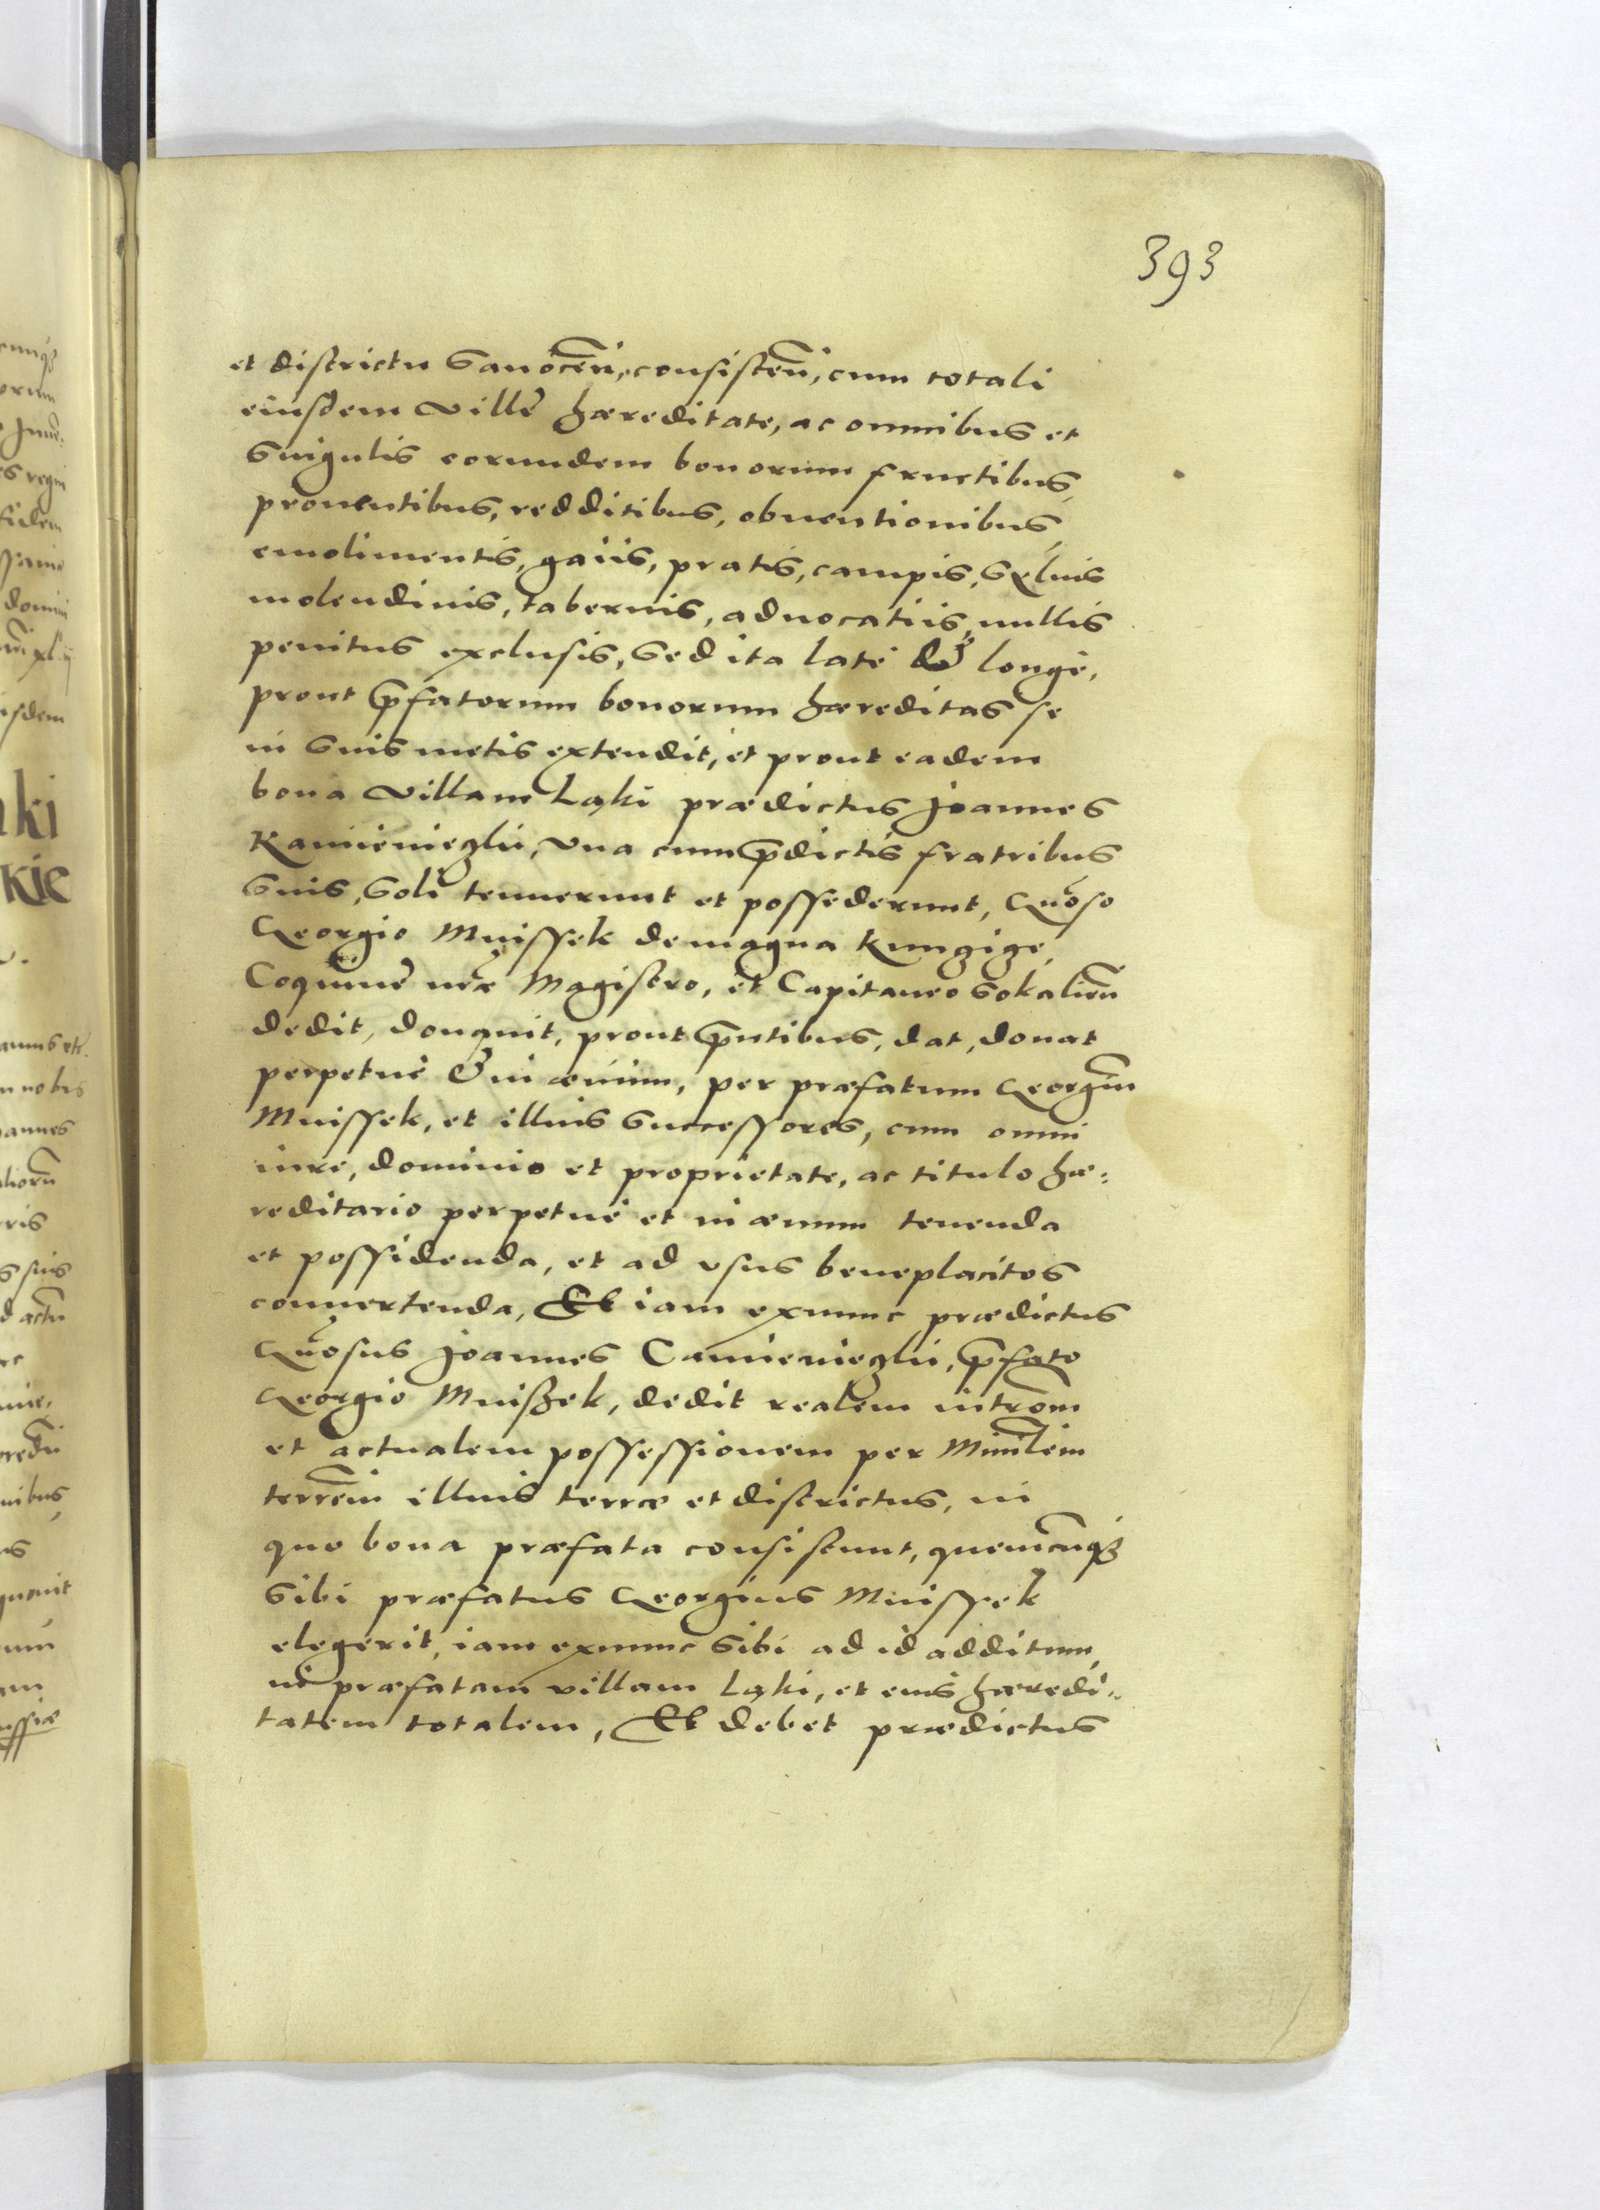 393
et districtu Sanocen̄, consisteñ, cum totali
eiusdem Ville hæreditate, ac omnibus et
Singulis eorundem bonorum fructibus,
prouentibus, redditibus, obuentionibus,
emolimentis, gaiis, pratis, campis, Syluis
molendinis, tabernis, aduocatiis, nullis
penitus exclusis, Sed ita latè & longè,
prout p̄fatorum bonorum hæreditas se
in Suis metis extendit, et prout eadem
bona Villam Ląki prædictus Joannes
Kamienieczki, Vna cum p̄dictis fratribus
Suis, Soli tenuerunt et possederunt, Gn̄oso
Georgio Mnissek de magna Kunczicze,
Coquine nr̄æ Magistro, et Capitaneo Sokalien̄
dedit, donauit, prout p̄ntibus, dat, donat
perpetuè & in æuum, per præfatum Georgiū
Mnissek, et illius Successores, cum omni
iure, dominio et proprietate, ac titulo hæ:
reditario perpetuè et in æuum tenenda
et possidenda, et ad vsus beneplacitos
conuertenda, Et iam exnunc prædictus
Gn̄osus Joannes Camienieczki, p̄fato
Georgio Mniszek, dedit realem intrōm
et actualem possessionem per Minr̄lem
terrēm illius terræ et districtus, in
quo bona præfata consistunt, quemcunq
Sibi præfatus Georgius Mnissek
elegerit, iam exnunc Sibi ad id additum,
in præfatam villam Ląki, et eius hæredi:
tatem totalem, Et debet prædictus